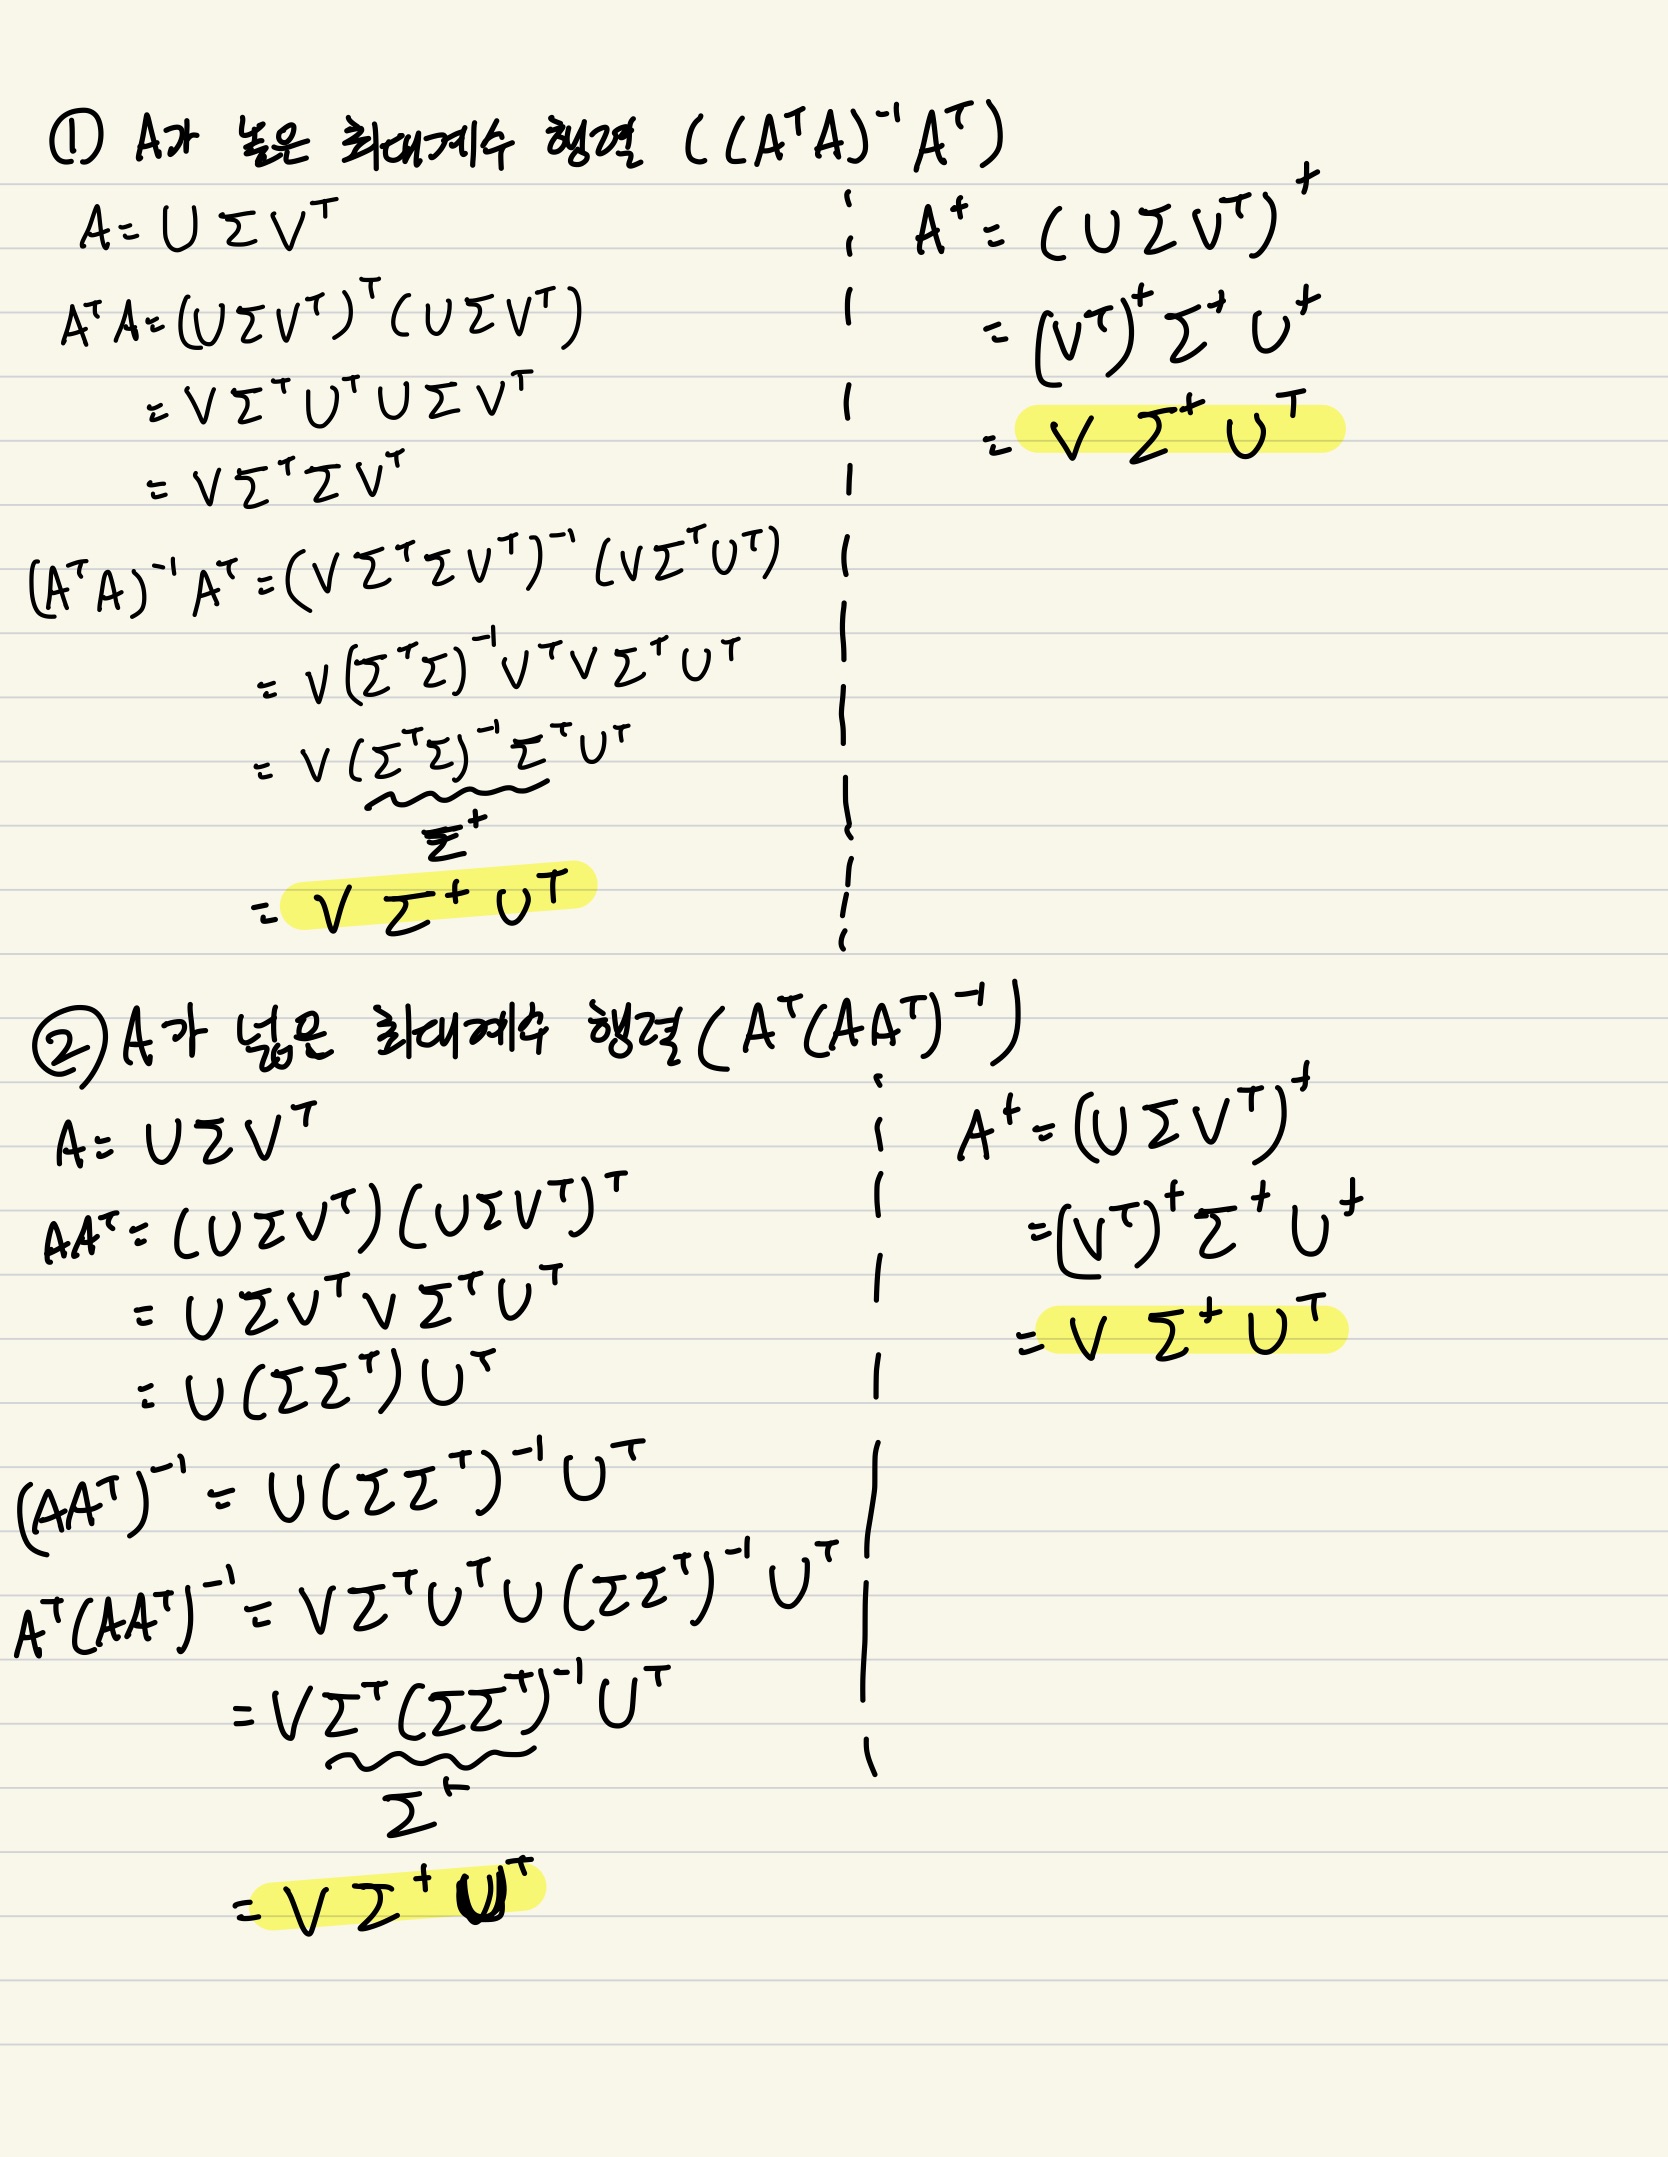 ① A가 높은 최대계수 행렬 ((AᵀA)⁻¹Aᵀ)
A = UΣVᵀ
AᵀA = (UΣVᵀ)ᵀ(UΣVᵀ)
= VΣᵀUᵀUΣVᵀ
= VΣᵀΣVᵀ
(AᵀA)⁻¹Aᵀ = (VΣᵀΣVᵀ)⁻¹(VΣᵀUᵀ)
= V(ΣᵀΣ)⁻¹VᵀVΣᵀUᵀ
= V(ΣᵀΣ)⁻¹ΣᵀUᵀ
Σ⁺
= VΣ⁺Uᵀ
A⁺ = (UΣVᵀ)⁺
= (Vᵀ)⁺Σ⁺U⁺
= VΣ⁺Uᵀ
② A가 넓은 최대계수 행렬(Aᵀ(AAᵀ)⁻¹)
A = UΣVᵀ
AAᵀ = (UΣVᵀ)(UΣVᵀ)ᵀ
= UΣVᵀVΣᵀUᵀ
= U(ΣΣᵀ)Uᵀ
(AAᵀ)⁻¹ = U(ΣΣᵀ)⁻¹Uᵀ
Aᵀ(AAᵀ)⁻¹ = VΣᵀUᵀU(ΣΣᵀ)⁻¹Uᵀ
= VΣᵀ(ΣΣᵀ)⁻¹Uᵀ
Σ⁺
= VΣ⁺Uᵀ
A⁺ = (UΣVᵀ)⁺
= (Vᵀ)⁺Σ⁺U⁺
= VΣ⁺Uᵀ